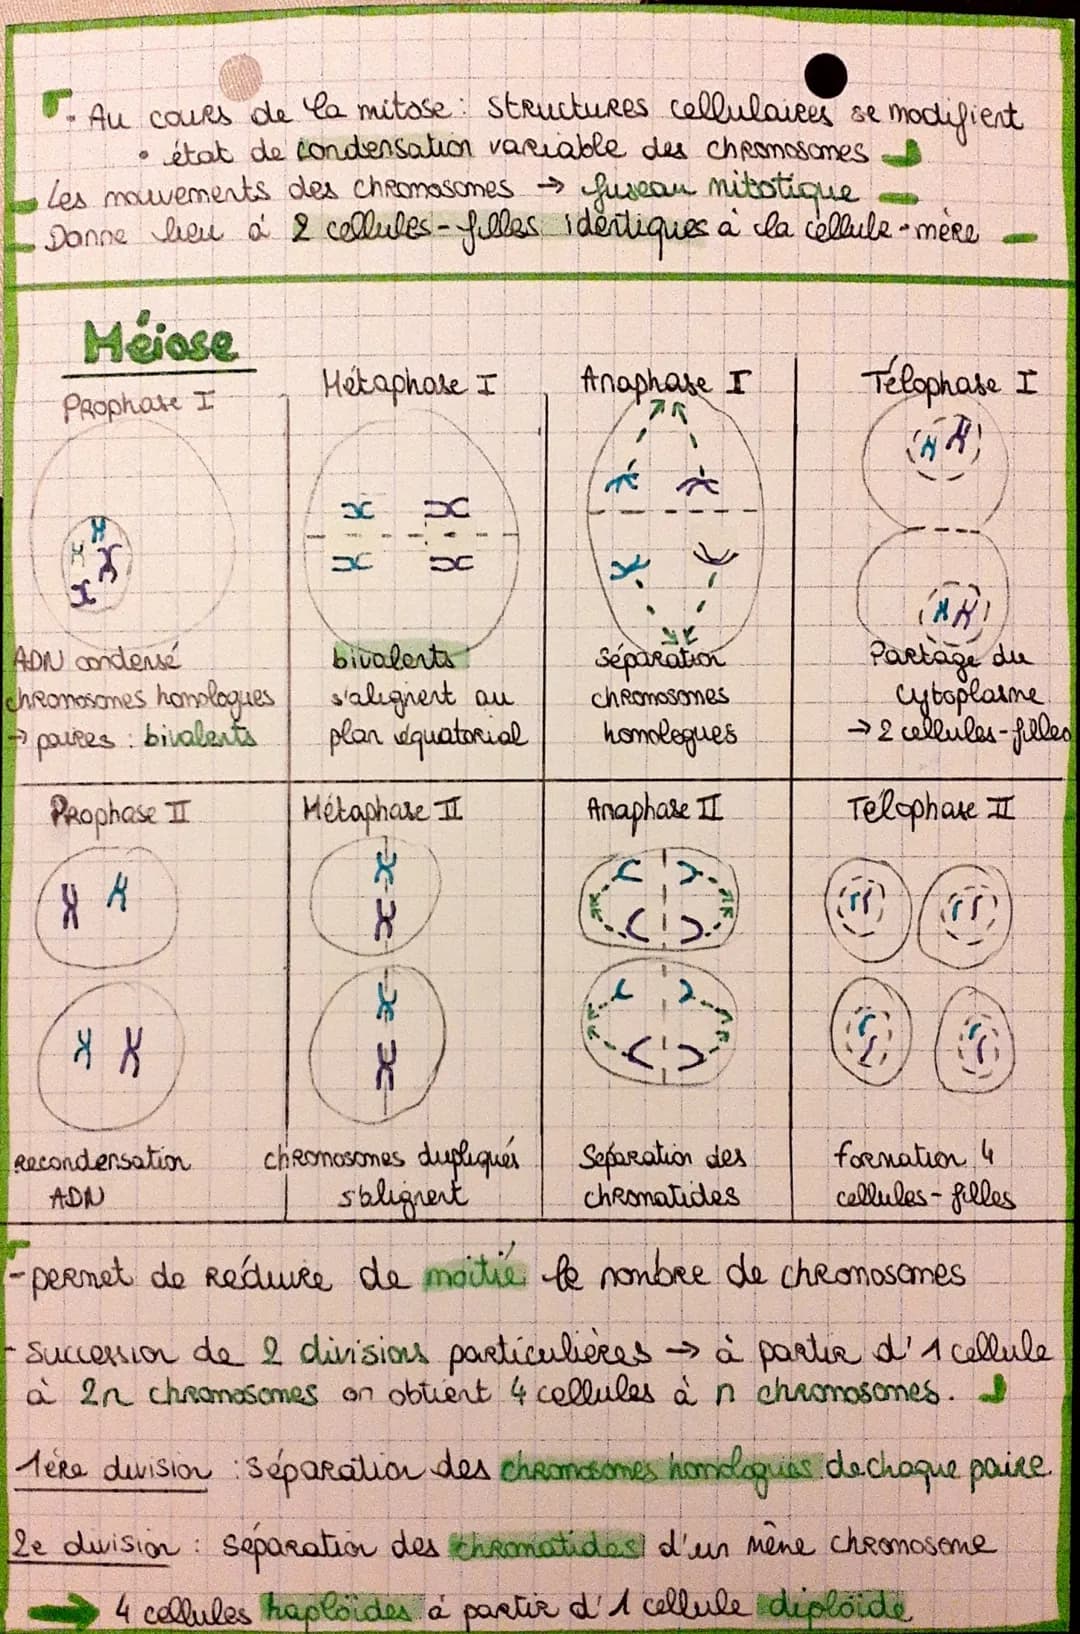 - Au cours de la mitose : structures cellulaires se modifient
• état de condensation variable des chromosomes
Les mouvements des chromosomes → fuseau mitotique
Donne lieu à 2 cellules-filles identiques à la cellule-mère
Méiose
Prophase I
Métaphase I
Anaphase I
Télophase I
ADN condensé
chromosomes homologues
→ paires : bivalents
bivalents
s'alignent au
plan équatorial
Séparation
chromosomes
homologues
Partage du
cytoplasme
→ 2 cellules-filles
Prophase II
Métaphase II
Anaphase II
Télophase II
recondensation
ADN
chromosomes dupliqués
s'alignent
Séparation des
chromatides
formation 4
cellules-filles
- permet de réduire de moitié le nombre de chromosomes
- Succession de 2 divisions particulières → à partir d'1 cellule
à 2n chromosomes on obtient 4 cellules à n chromosomes.
1ère division : séparation des chromosomes homologues de chaque paire
2e division : séparation des chromatides d'un même chromosome
→ 4 cellules haploïdes à partir d'1 cellule diploïde